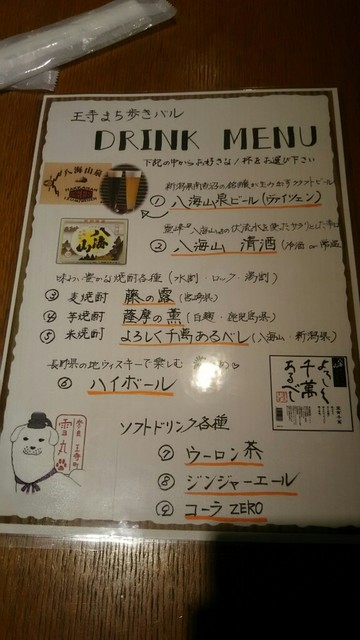 王寺まち歩きバル
DRINK MENU
下記の中からお好きな1杯をお選び下さい
八海山泉
新潟県南魚沼の銘醸が生み出すクラフトビール
① 八海山泉ビール(ヴァイツェン)
八海山
霊峰八海山の伏流水を使った
② 八海山 清酒 (冷酒 or
味わい豊かな焼酎各種(水割・ロック・湯割)
③ 麦焼酎 藤の露 (宮崎県)
④ 芋焼酎 薩摩の薫 (白麹・鹿児島県)
⑤ 米焼酎 よろしく千萬あるべし (八海山・新潟県)
長野県の地ウィスキーで楽しむ
⑥ ハイボール
よろしく
千萬
あるべし
ソフトドリンク各種
奈良 王寺町
雪丸
⑦ ウーロン茶
⑧ ジンジャーエール
⑨ コーラ ZERO